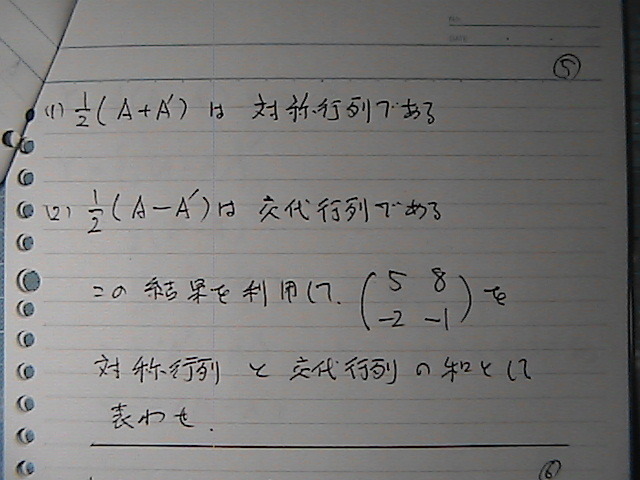 NO.
DATE
⑤
(1) 1/2 (A+A′) は 対称行列である
(2) 1/2 (A−A′) は 交代行列である
この 結果を 利用して、(5 8
-2 -1) を
対称行列 と 交代行列 の 和として
表わせ.
⑥